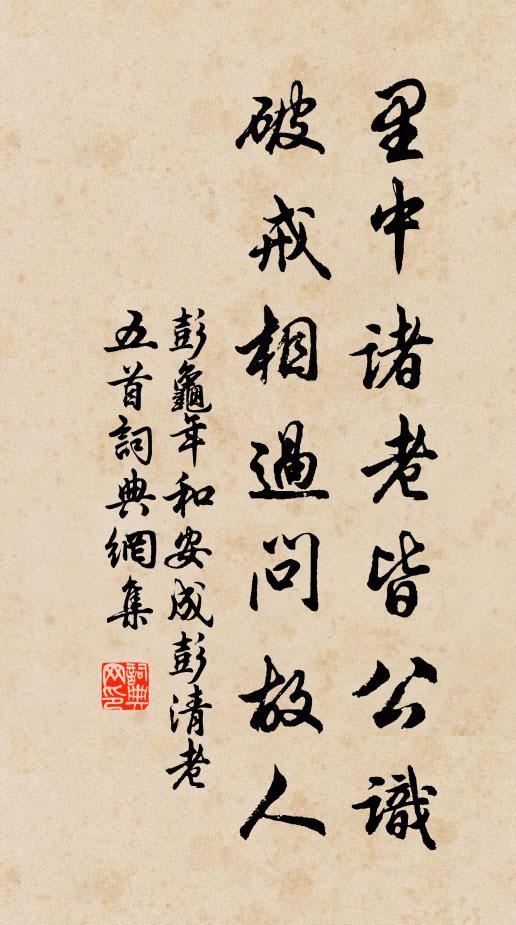 里中諸老皆公識
破戒相過問故人
彭龜年和安成彭清老
五首詞典網集
詞典
网印